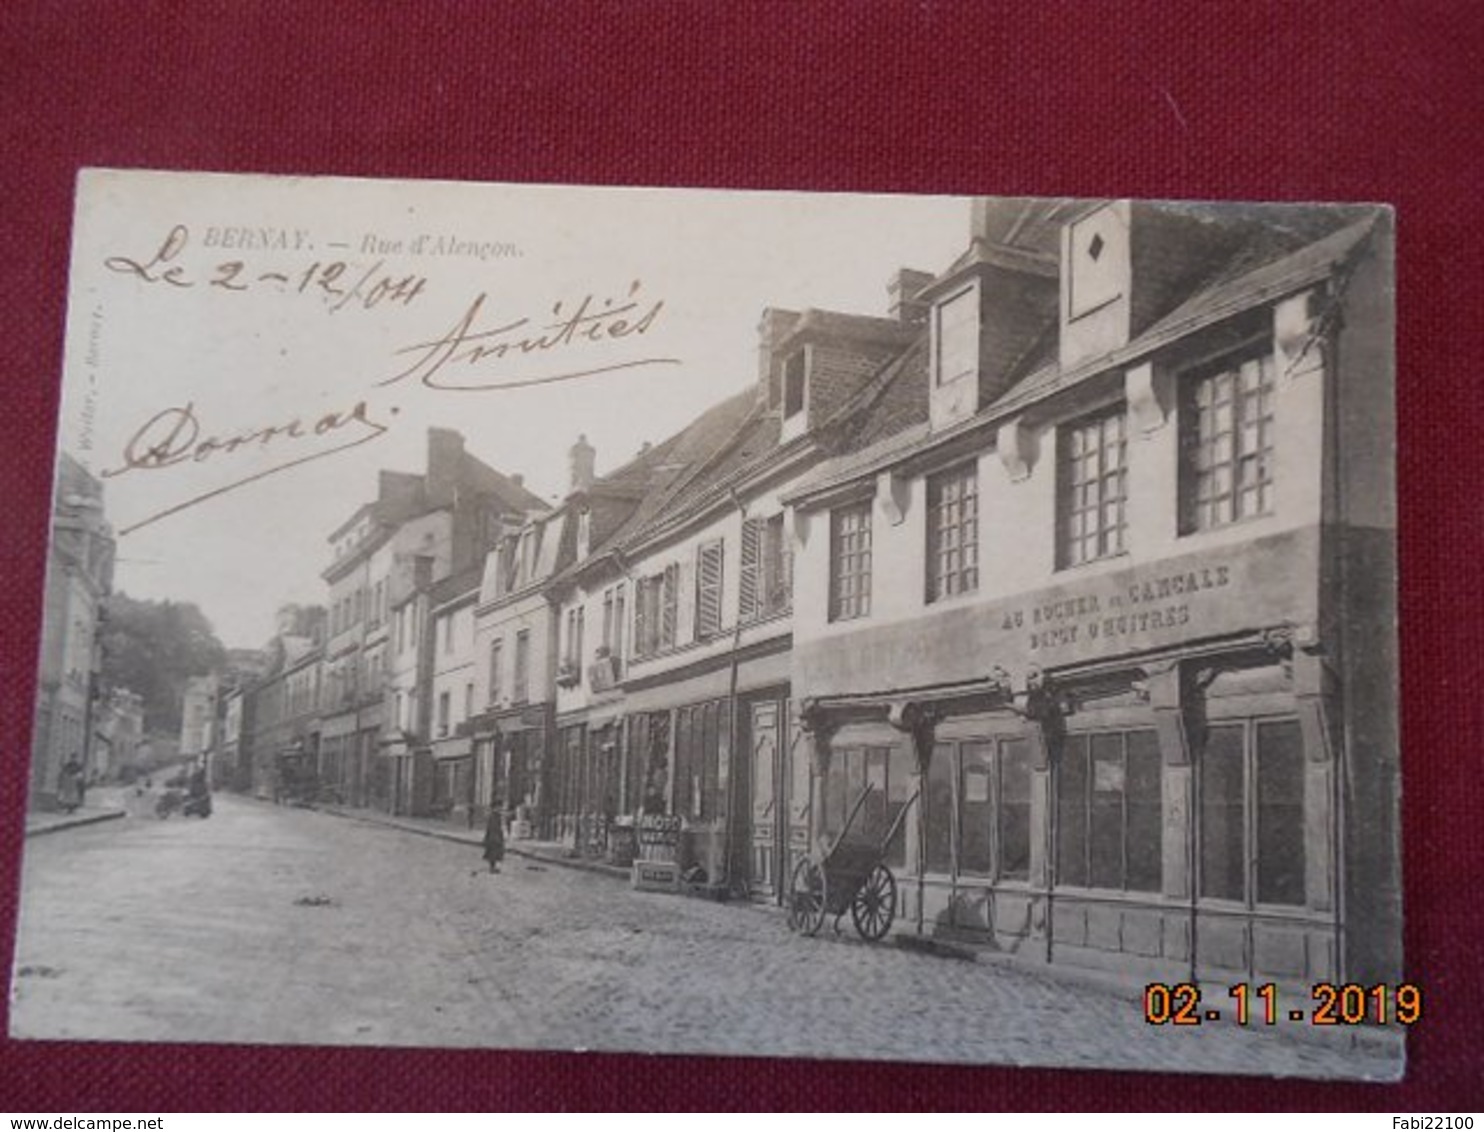 BERNAY. — Rue d'Alençon.
Le 2-12/04
Amitiés
AU ROCHER DE CANCALE
DEPOT D'HUITRES
02.11.2019
delcampe.net
Fabi22100